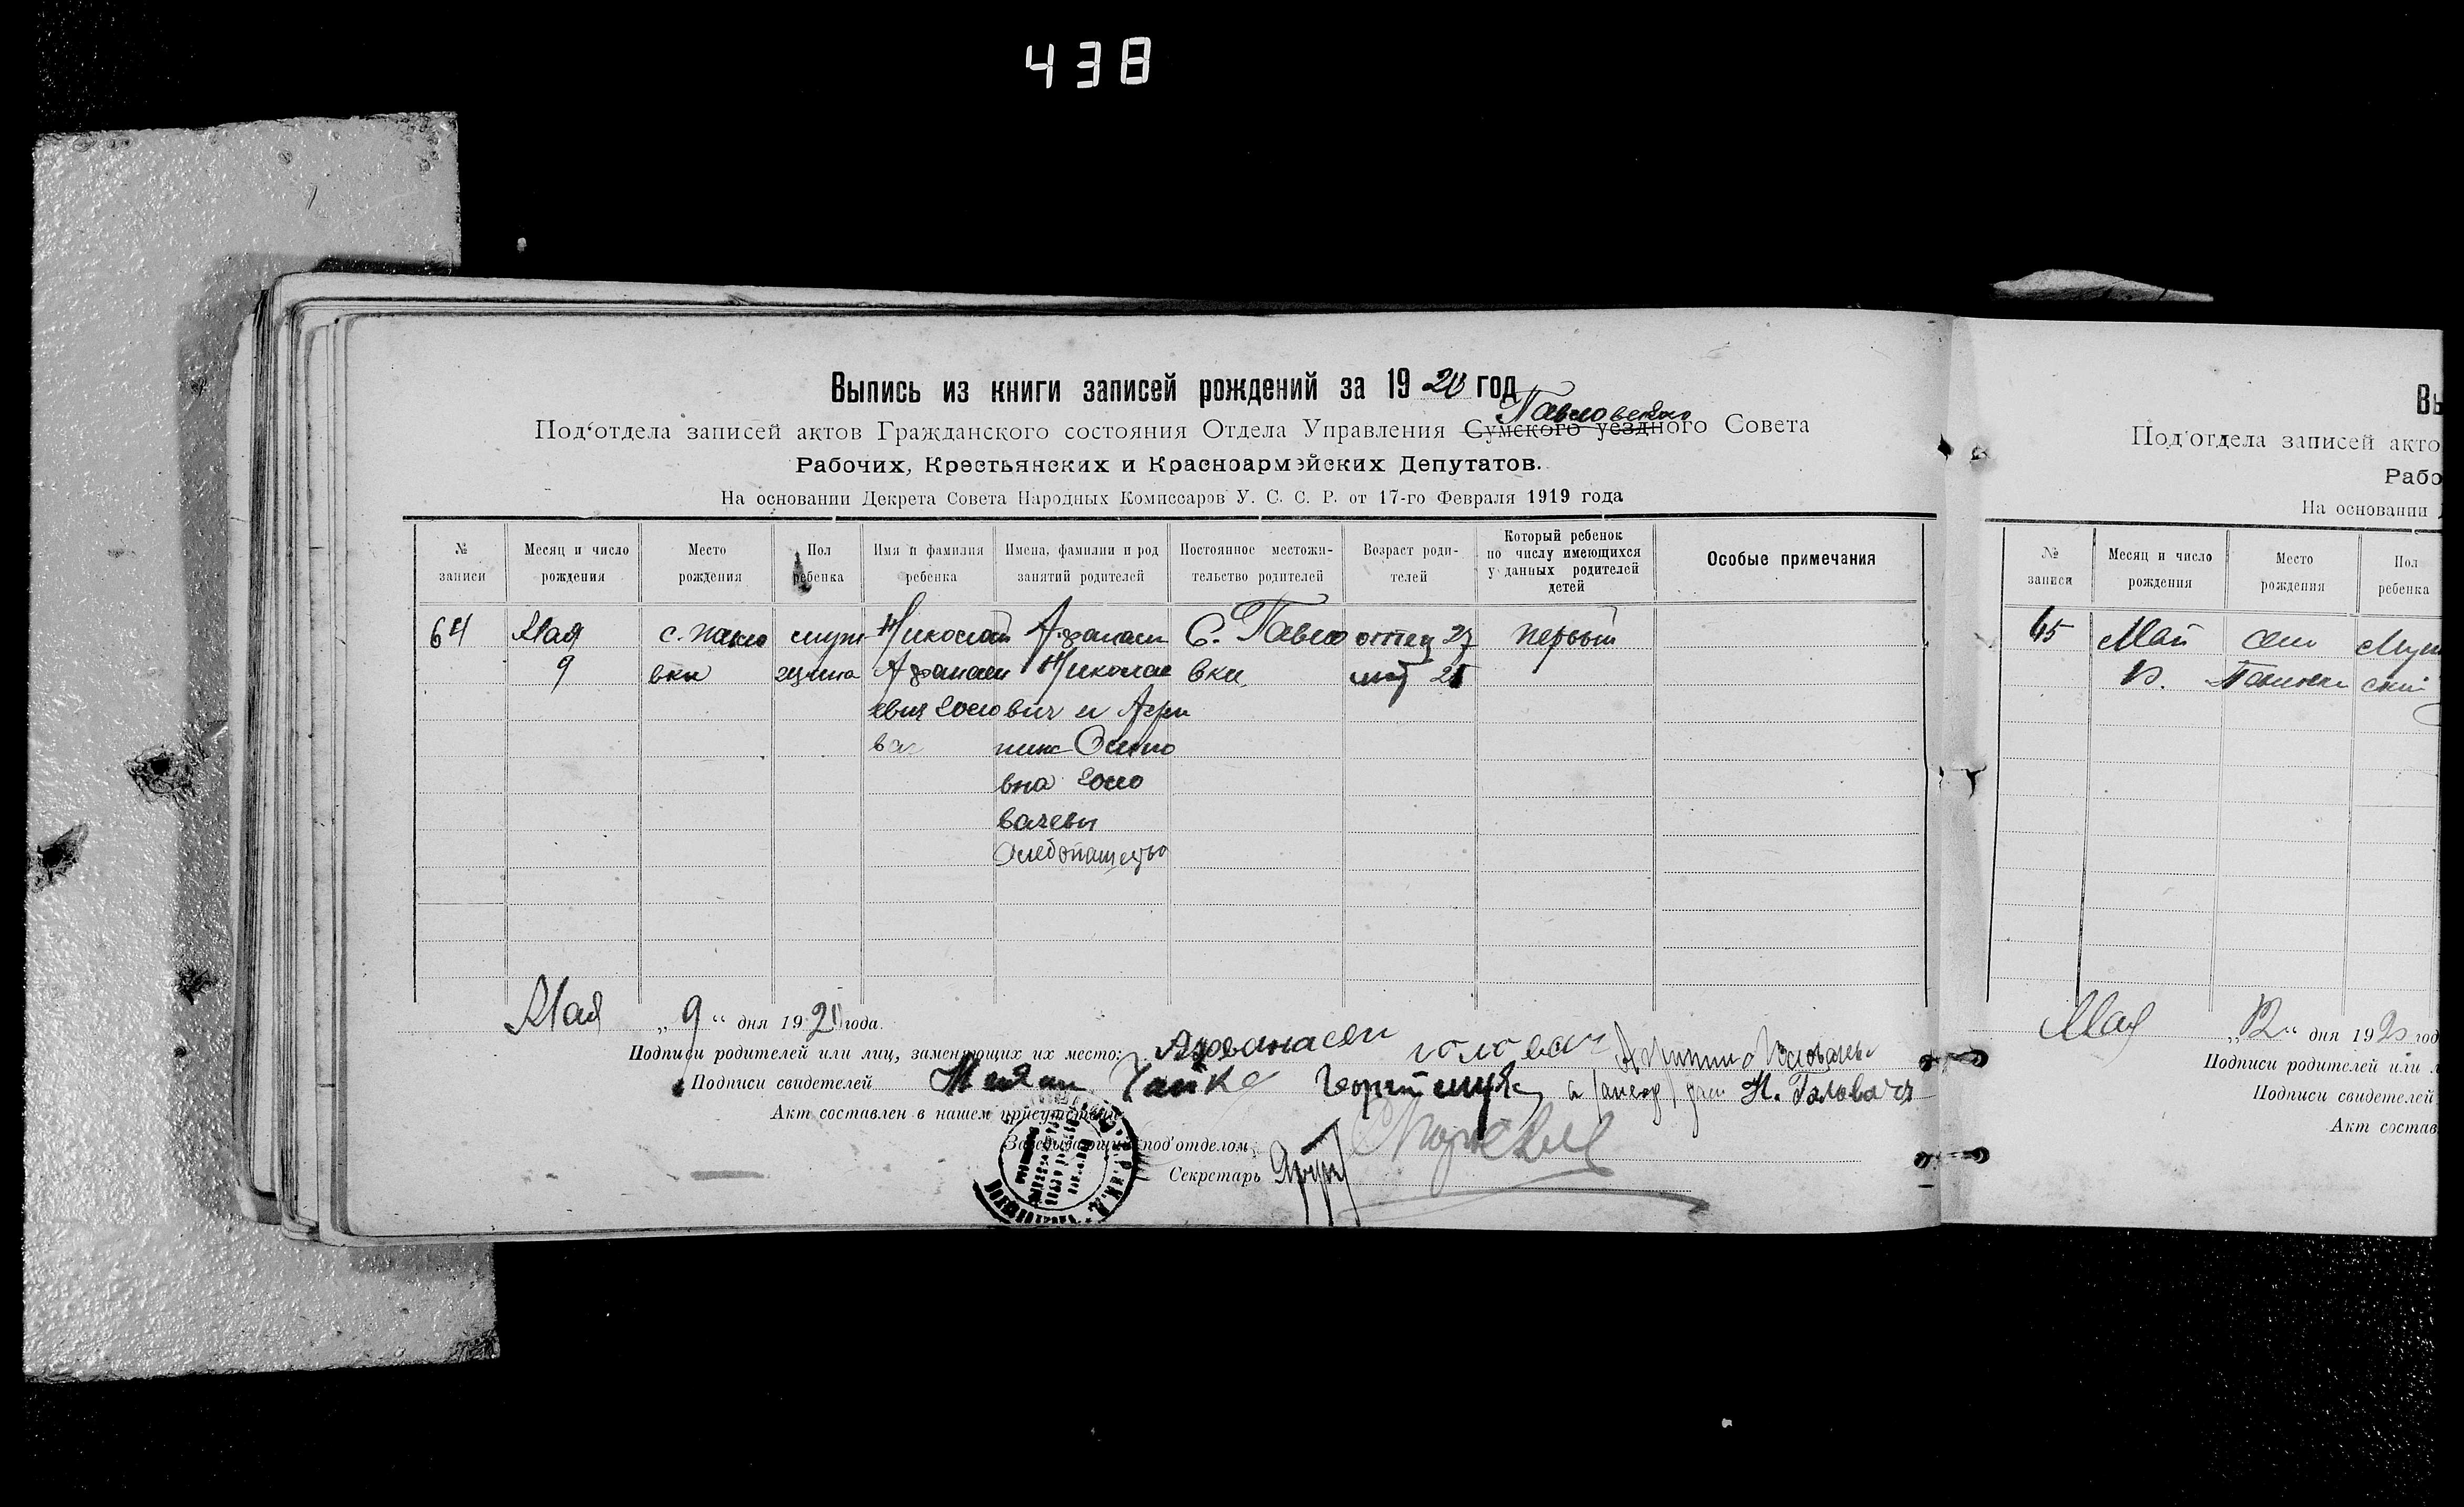 438
Выпись из книги записей рождений за 1920 год
Павловского
Под'отдела записей актов Гражданского состояния Отдела Управления Сумского уездного Совета
Рабочих, Крестьянских и Красноармейских Депутатов.
На основании Декрета Совета Народных Комиссаров У. С. С. Р. от 17-го Февраля 1919 года
№ записи
Месяц и число рождения
Место рождения
Пол ребенка
Имя и фамилия ребенка
Имена, фамилии и род занятий родителей
Постоянное местожительство родителей
Возраст родителей
Который ребенок по числу имеющихся у данных родителей детей
Особые примечания
64 Мая с. Павло мужи Николай Афанасий С. Павло отец 27 первый
9 вки щина Афанаси Николае вки
евич Голо вич и Агри
вач пина Осипо
вна Голо
вачевы
Хлебопашество
Мая „9“ дня 1920 года.
Подписи родителей или лиц, заменяющих их место: Афанасей головач
Подписи свидетелей Чайка Н. Головач
Акт составлен в нашем присутствии
Заведывающий под'отделом
Секретарь
Вы
Под'отдела записей акто
Рабо
На основании
№ записи
Месяц и число рождения
Место рождения
Пол ребенка
65 Май село
Мая „12“ дня 1920 год
Подписи родителей или л
Подписи свидетелей
Акт состав